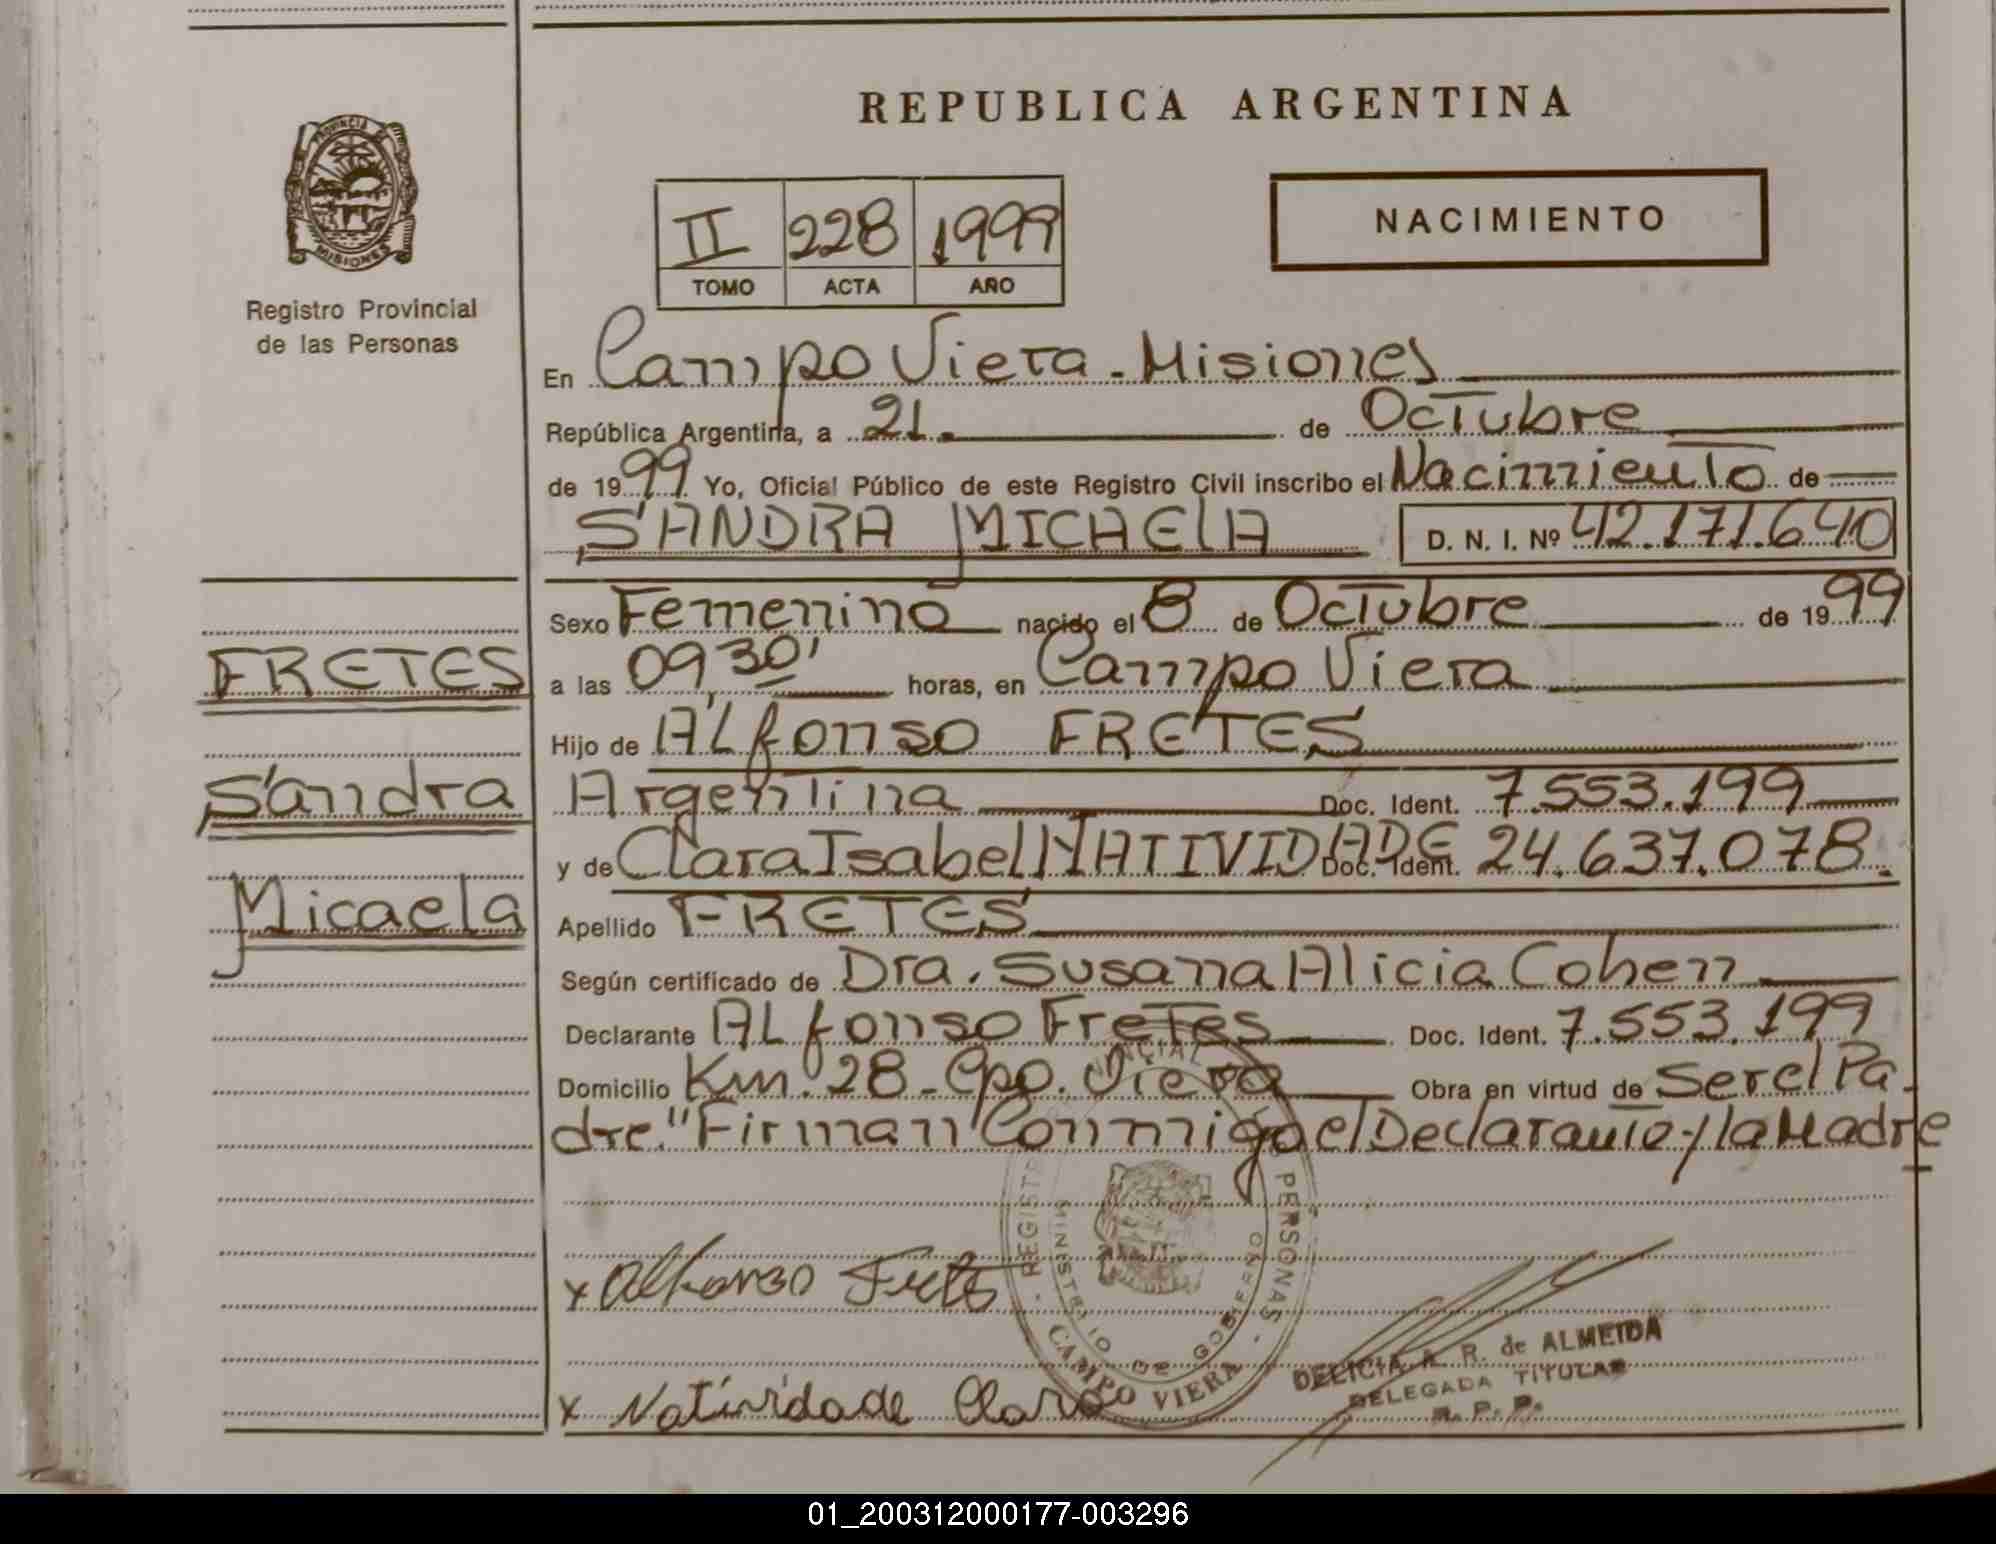 REPUBLICA ARGENTINA
PROVINCIA DE
MISIONES
Registro Provincial
de las Personas
II 228 1999
TOMO ACTA AÑO
NACIMIENTO
En Campo Viera - Misiones
República Argentina, a 21. de Octubre
de 1999 Yo, Oficial Público de este Registro Civil inscribo el Nacimiento de
SANDRA MICAELA D. N. I. Nº 42.171.640
Sexo Femenino nacido el 8 de Octubre de 1999
a las 09,30' horas, en Campo Viera
Hijo de ALfonso FRETES
Argentina Doc. Ident. 7.553.199
y de Clara Isabel NATIVIDADE Doc. Ident. 24.637.078.
Apellido FRETES
Según certificado de Dra. Susana Alicia Cohen
Declarante ALfonso Fretes Doc. Ident. 7.553.199
Domicilio Km. 28 - Cpo. Viera Obra en virtud de Ser el Pa-
dre." Firman Conmigo el Declarante y la Madre
FRETES
Sandra
Micaela
x Alfonso Fretes
x Natividade Clara
REGISTRO PROVINCIAL PERSONAS
MINISTERIO DE GOBIERNO
CAMPO VIERA
DELICIA A. R. de ALMEIDA
DELEGADA TITULAR
R. P. P.
01_200312000177-003296